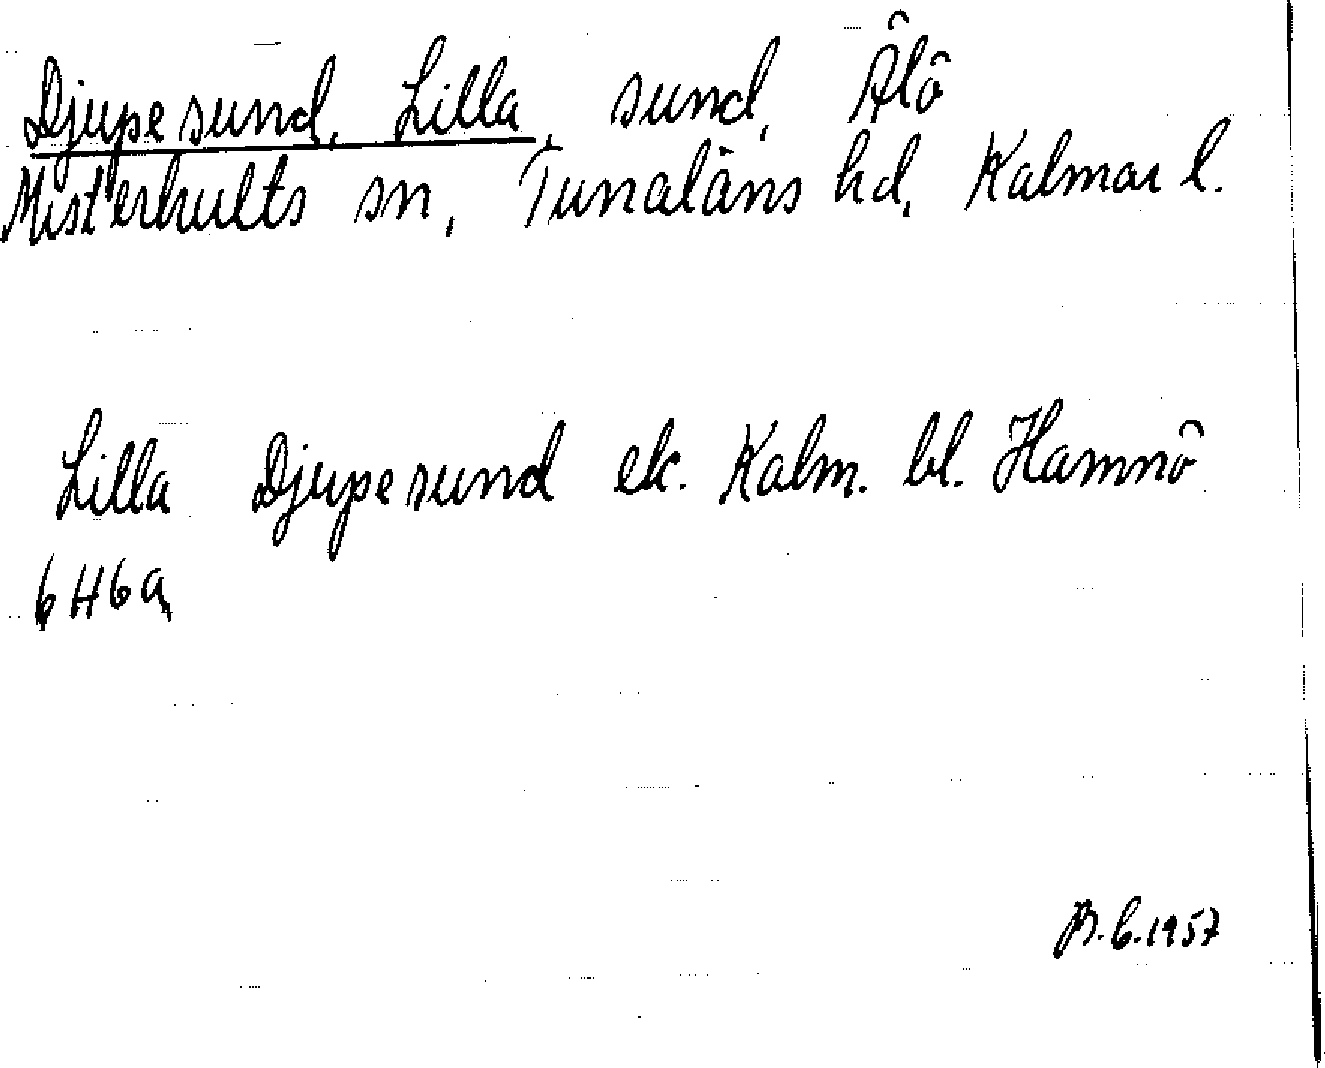 Djupesund, Lilla, sund, Älö
Misterhults sn, Tunaläns hd, Kalmar l.
Lilla Djupesund ek. Kalm. bl. Hamnö
6H6a
B.G.1957